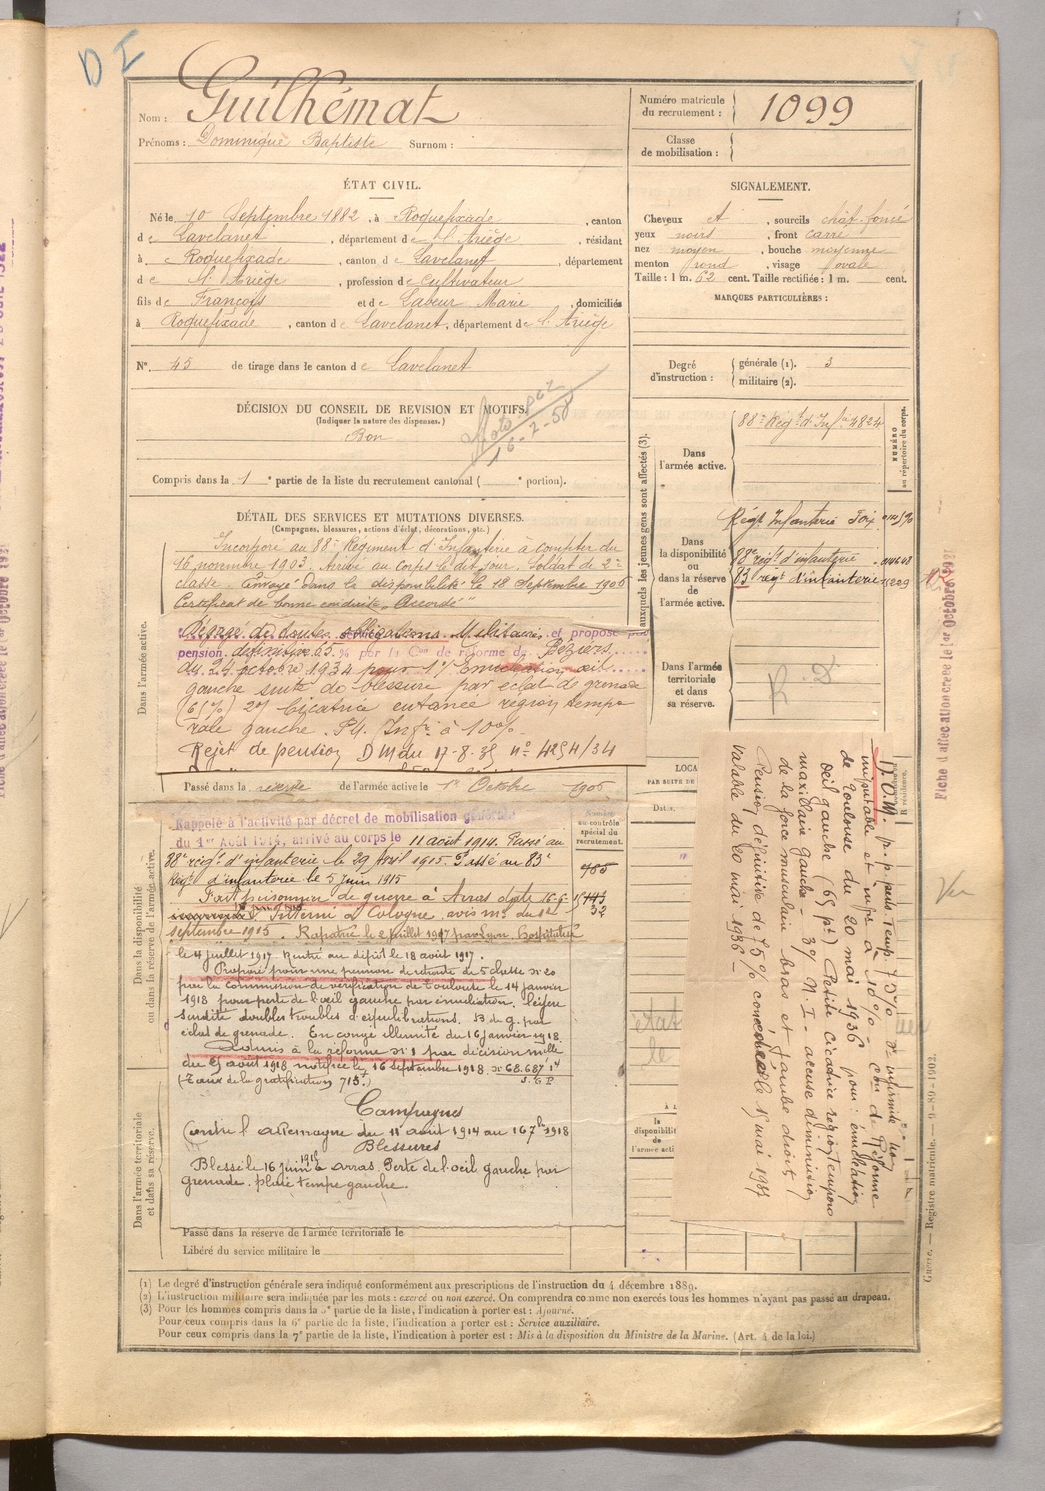 DI
Nom : Guilhémat
Prénoms : Dominique Baptiste Surnom :
Numéro matricule du recrutement : 1099
Classe de mobilisation :
ÉTAT CIVIL.
Né le 10 Septembre 1882, à Roquefixade, canton
de Lavelanet, département de l'Ariège, résidant
à Roquefixade, canton de Lavelanet, département
de l'Ariège, profession de cultivateur
fils de François et de Labeur Marie, domiciliés
à Roquefixade, canton de Lavelanet, département de l'Ariège
N° 45 de tirage dans le canton de Lavelanet
SIGNALEMENT.
Cheveux et, sourcils chât. foncé
yeux noirs, front carré
nez moyen, bouche moyenne
menton rond, visage ovale
Taille : 1 m. 62 cent. Taille rectifiée : 1 m. cent.
MARQUES PARTICULIÈRES :
Degré d'instruction : générale (1). 3
militaire (2).
DÉCISION DU CONSEIL DE REVISION ET MOTIFS.
(Indiquer la nature des dispenses.)
Bon
16-2-58
Compris dans la 1e partie de la liste du recrutement cantonal ( e portion).
DÉTAIL DES SERVICES ET MUTATIONS DIVERSES.
(Campagnes, blessures, actions d'éclat, décorations, etc.)
Incorporé au 88e Régiment d'Infanterie à compter du
16 novembre 1903. Arrivé au corps le dit jour. Soldat de 2e
classe. Envoyé dans la disponibilité le 18 Septembre 1906
Certificat de bonne conduite "Accordé"
Dans l'armée active.
Dégagé de toutes obligations Militaires, et proposé pr
pension définitive 65 % par la Con de réforme de Béziers
du 24 octobre 1934 pour 1°/ Enucléation œil
gauche suite de blessure par éclat de grenade
(65%) 2°/ Cicatrice cutanée région tempo
rale gauche. P.U. Infre à 10%.
Rejet de pension DM du 17-8-35 n° 4254/34
Passé dans la réserve de l'armée active le 1er Octobre 1906
Dans la disponibilité ou dans la réserve de l'armée active.
Rappelé à l'activité par décret de mobilisation générale
du 1er Août 1914, arrivé au corps le 11 août 1914. Passé au
88e régt d'infanterie le 29 Avril 1915. Passé au 83e
Régt d'infanterie le 5 Juin 1915
Fait prisonnier de guerre à Arras le 16-6-15
Interné à Cologne, avis
septembre 1915. Rapatrié le 2 juillet 1917 par Lyon. Hospitalisé
le 4 juillet 1917 Rentré au dépôt le 18 août 1917.
Proposé pour une pension de retraite de 5e classe
par la Commission de vérification de Toulouse le 14 janvier
1918 pour perte de l'œil gauche par énucléation, légère
surdité doubles troubles d'équilibration. B. de g. par
éclat de grenade. En congé illimité du 16 janvier 1918.
Admis à la réforme n° 1 par décision mlle
du 5 août 1918 notifiée le 16 septembre 1918. n° 68.687
(Taux de la gratification
Campagnes
Contre l'allemagne du 11 août 1914 au 1918
Blessures
Blessé le 16 juin 1915 à Arras. Perte de l'œil gauche par
grenade. plaie tempe gauche.
Numéro au contrôle spécial du recrutement.
985
143
32
Dans l'armée territoriale et dans sa réserve.
Passé dans la réserve de l'armée territoriale le
Libéré du service militaire le
CORPS auxquels les jeunes gens sont affectés (3).
NUMÉRO au répertoire du corps.
Dans l'armée active.
88e Régt d'Infie 4824
Dans la disponibilité ou dans la réserve de l'armée active.
Régt Infanterie Foix
88e régt d'infanterie
83 régt d'infanterie
Dans l'armée territoriale et dans sa réserve.
R. D.
LOCA
PAR SUITE DE
Dates.
état
le
la disponibilité de l'armée acti
D.O.M. p.p. pens. temp. 75% pr infirmité non
imputable et infre à 10% Con de Réforme
de Toulouse du 20 mai 1936 pour : énucléation
œil gauche (65 %) Petite Cicatrice région temporo
maxillaire gauche - 3°/ M.I - accuse diminution
de la force musculaire bras et jambe droits /
Pension définitive de 75% concédée le 15 mai 1937
valable du 20 mai 1936 -
Fiche d'affectation créée le 1er Octobre 1921
Vu
Guerre. — Registre matricule. — 9-89-1902.
(1) Le degré d'instruction générale sera indiqué conformément aux prescriptions de l'instruction du 4 décembre 1889.
(2) L'instruction militaire sera indiquée par les mots : exercé ou non exercé. On comprendra comme non exercés tous les hommes n'ayant pas passé au drapeau.
(3) Pour les hommes compris dans la 5e partie de la liste, l'indication à porter est : Ajourné.
Pour ceux compris dans la 6e partie de la liste, l'indication à porter est : Service auxiliaire.
Pour ceux compris dans la 7e partie de la liste, l'indication à porter est : Mis à la disposition du Ministre de la Marine. (Art. 4 de la loi.)